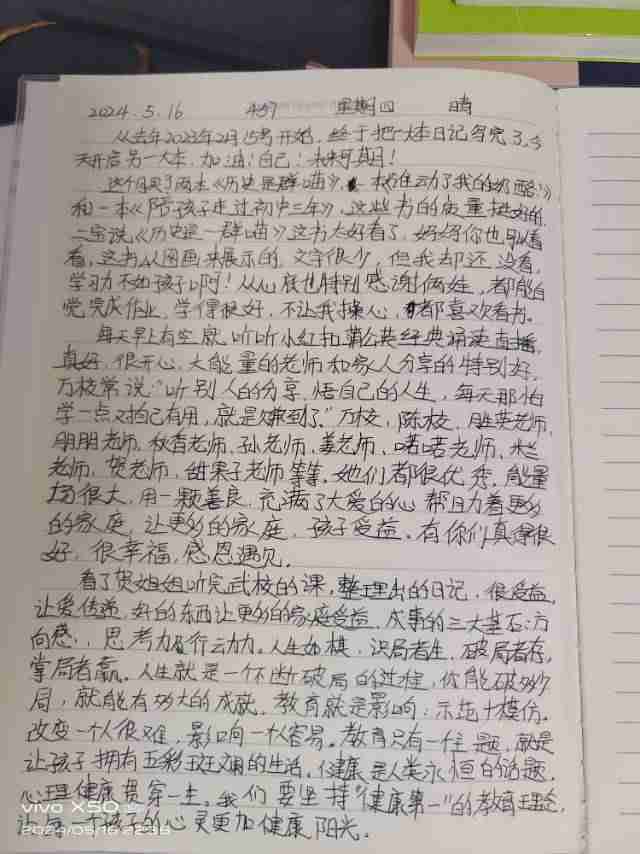 2024.5.16 459 星期四 晴
从去年2023年2月15号开始,终于把一大本日记写完了,今
天开启另一大本,加油!自己!未来可期!
这个月买了两本《历史是群喵》,一本《谁动了我的奶酪》
和一本《陪孩子走过初中三年》,这些书的质量挺好的,
二宝说《历史是一群喵》这书太好看了,妈妈你也可以看
看,这书以图画来展示的,文字很少,但我却还没看,
学习力不如孩子啊!从心底也特别感谢俩娃,都能自
觉完成作业,学得很好,不让我操心,都喜欢看书。
每天早上有空就听听小红扣蒲公英经典诵读直播,
真好,很开心,大能量的老师和家人分享的特别好,
万校常说"听别人的分享,悟自己的人生,每天那怕
学一点对自己有用,就是赚到了。"万校,陈校,胜英老师,
朋朋老师,秋香老师,孙老师,姜老师,喏喏老师,
老师,贺老师,甜果子老师等等。她们都很优秀,能量
场很大,用一颗善良,充满了大爱的心帮助着更多
的家庭,让更多的家庭,孩子受益。有你们真得很
好,很幸福,感恩遇见。
看了贺姐姐听完武校的课,整理出的日记,很受益,
让爱传递,好的东西让更多的家庭受益,成事的三大基石:方
向感,思考力及行动力。人生如棋,识局者生,破局者存,
掌局者赢。人生就是一个不断破局的过程,你能破多少
局,就能有多大的成就。教育就是影响:示范+模仿。
改变一个人很难,影响一个人容易。教育只有一个主题,就是
让孩子拥有五彩斑斓的生活,健康是人类永恒的话题,
心理健康贯穿一生。我们要坚持"健康第一"的教育理念,
让每一个孩子的心灵更加健康阳光。
vivo X50
2024/05/16 22:36